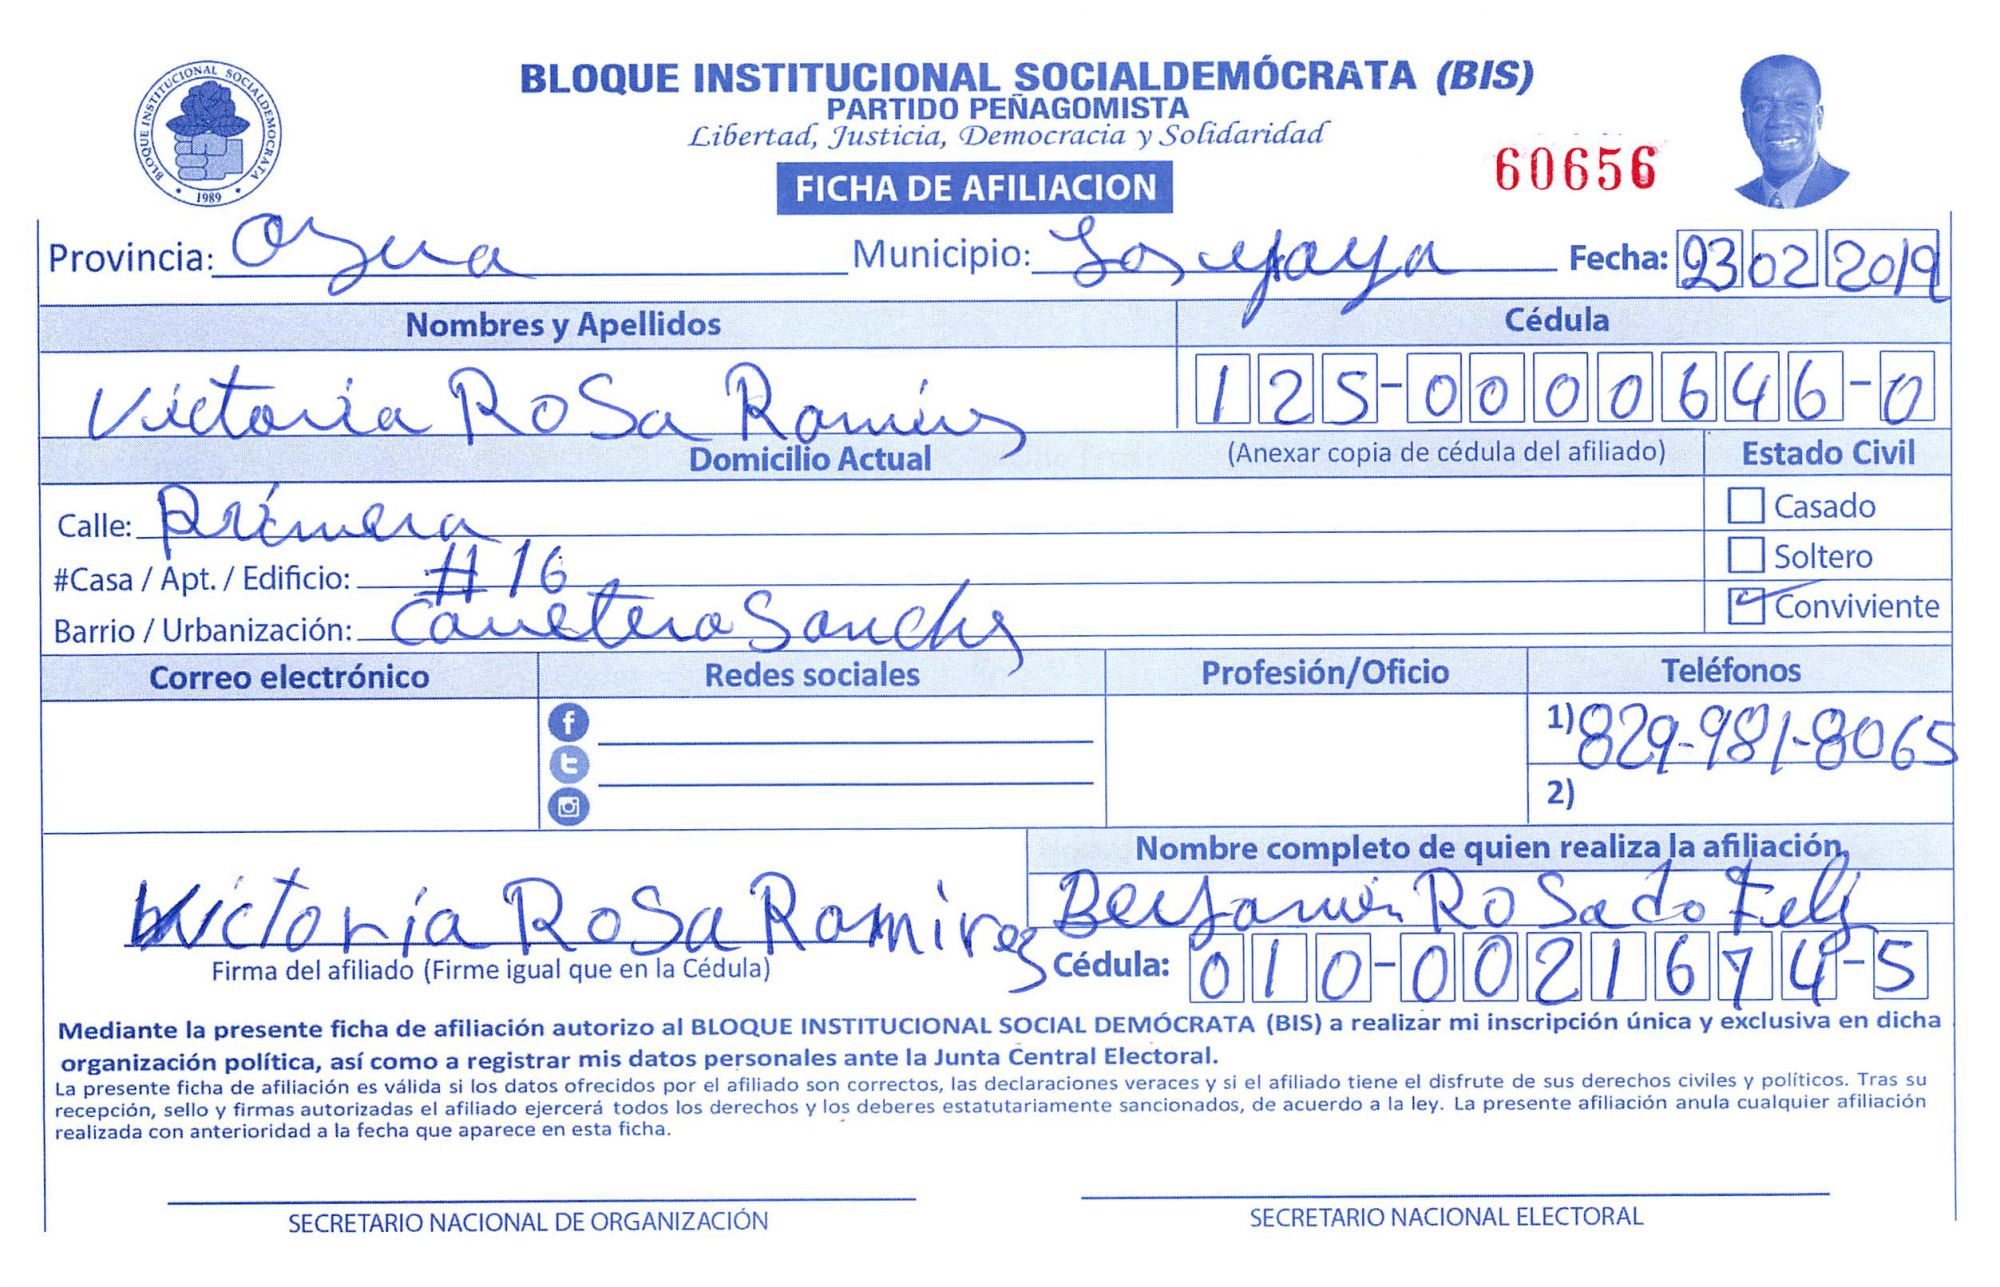 BLOQUE INSTITUCIONAL SOCIALDEMOCRATA
1989
BLOQUE INSTITUCIONAL SOCIALDEMÓCRATA (BIS)
PARTIDO PEÑAGOMISTA
Libertad, Justicia, Democracia y Solidaridad
FICHA DE AFILIACION
60656
Provincia: Azua Municipio: Los yaya Fecha: 23 02 2019
Nombres y Apellidos Cédula
Victoria RoSa Ramires 125-0000646-0
Domicilio Actual (Anexar copia de cédula del afiliado) Estado Civil
Calle: Primera Casado
#Casa / Apt. / Edificio: #16 Soltero
Barrio / Urbanización: Carretera Sanches Conviviente
Correo electrónico Redes sociales Profesión/Oficio Teléfonos
1) 829-981-8065
2)
Nombre completo de quien realiza la afiliación
Victoria RoSa Ramirez Benjamin RoSado Feliz
Firma del afiliado (Firme igual que en la Cédula) Cédula: 010-0021674-5
Mediante la presente ficha de afiliación autorizo al BLOQUE INSTITUCIONAL SOCIAL DEMÓCRATA (BIS) a realizar mi inscripción única y exclusiva en dicha
organización política, así como a registrar mis datos personales ante la Junta Central Electoral.
La presente ficha de afiliación es válida si los datos ofrecidos por el afiliado son correctos, las declaraciones veraces y si el afiliado tiene el disfrute de sus derechos civiles y políticos. Tras su
recepción, sello y firmas autorizadas el afiliado ejercerá todos los derechos y los deberes estatutariamente sancionados, de acuerdo a la ley. La presente afiliación anula cualquier afiliación
realizada con anterioridad a la fecha que aparece en esta ficha.
SECRETARIO NACIONAL DE ORGANIZACIÓN SECRETARIO NACIONAL ELECTORAL